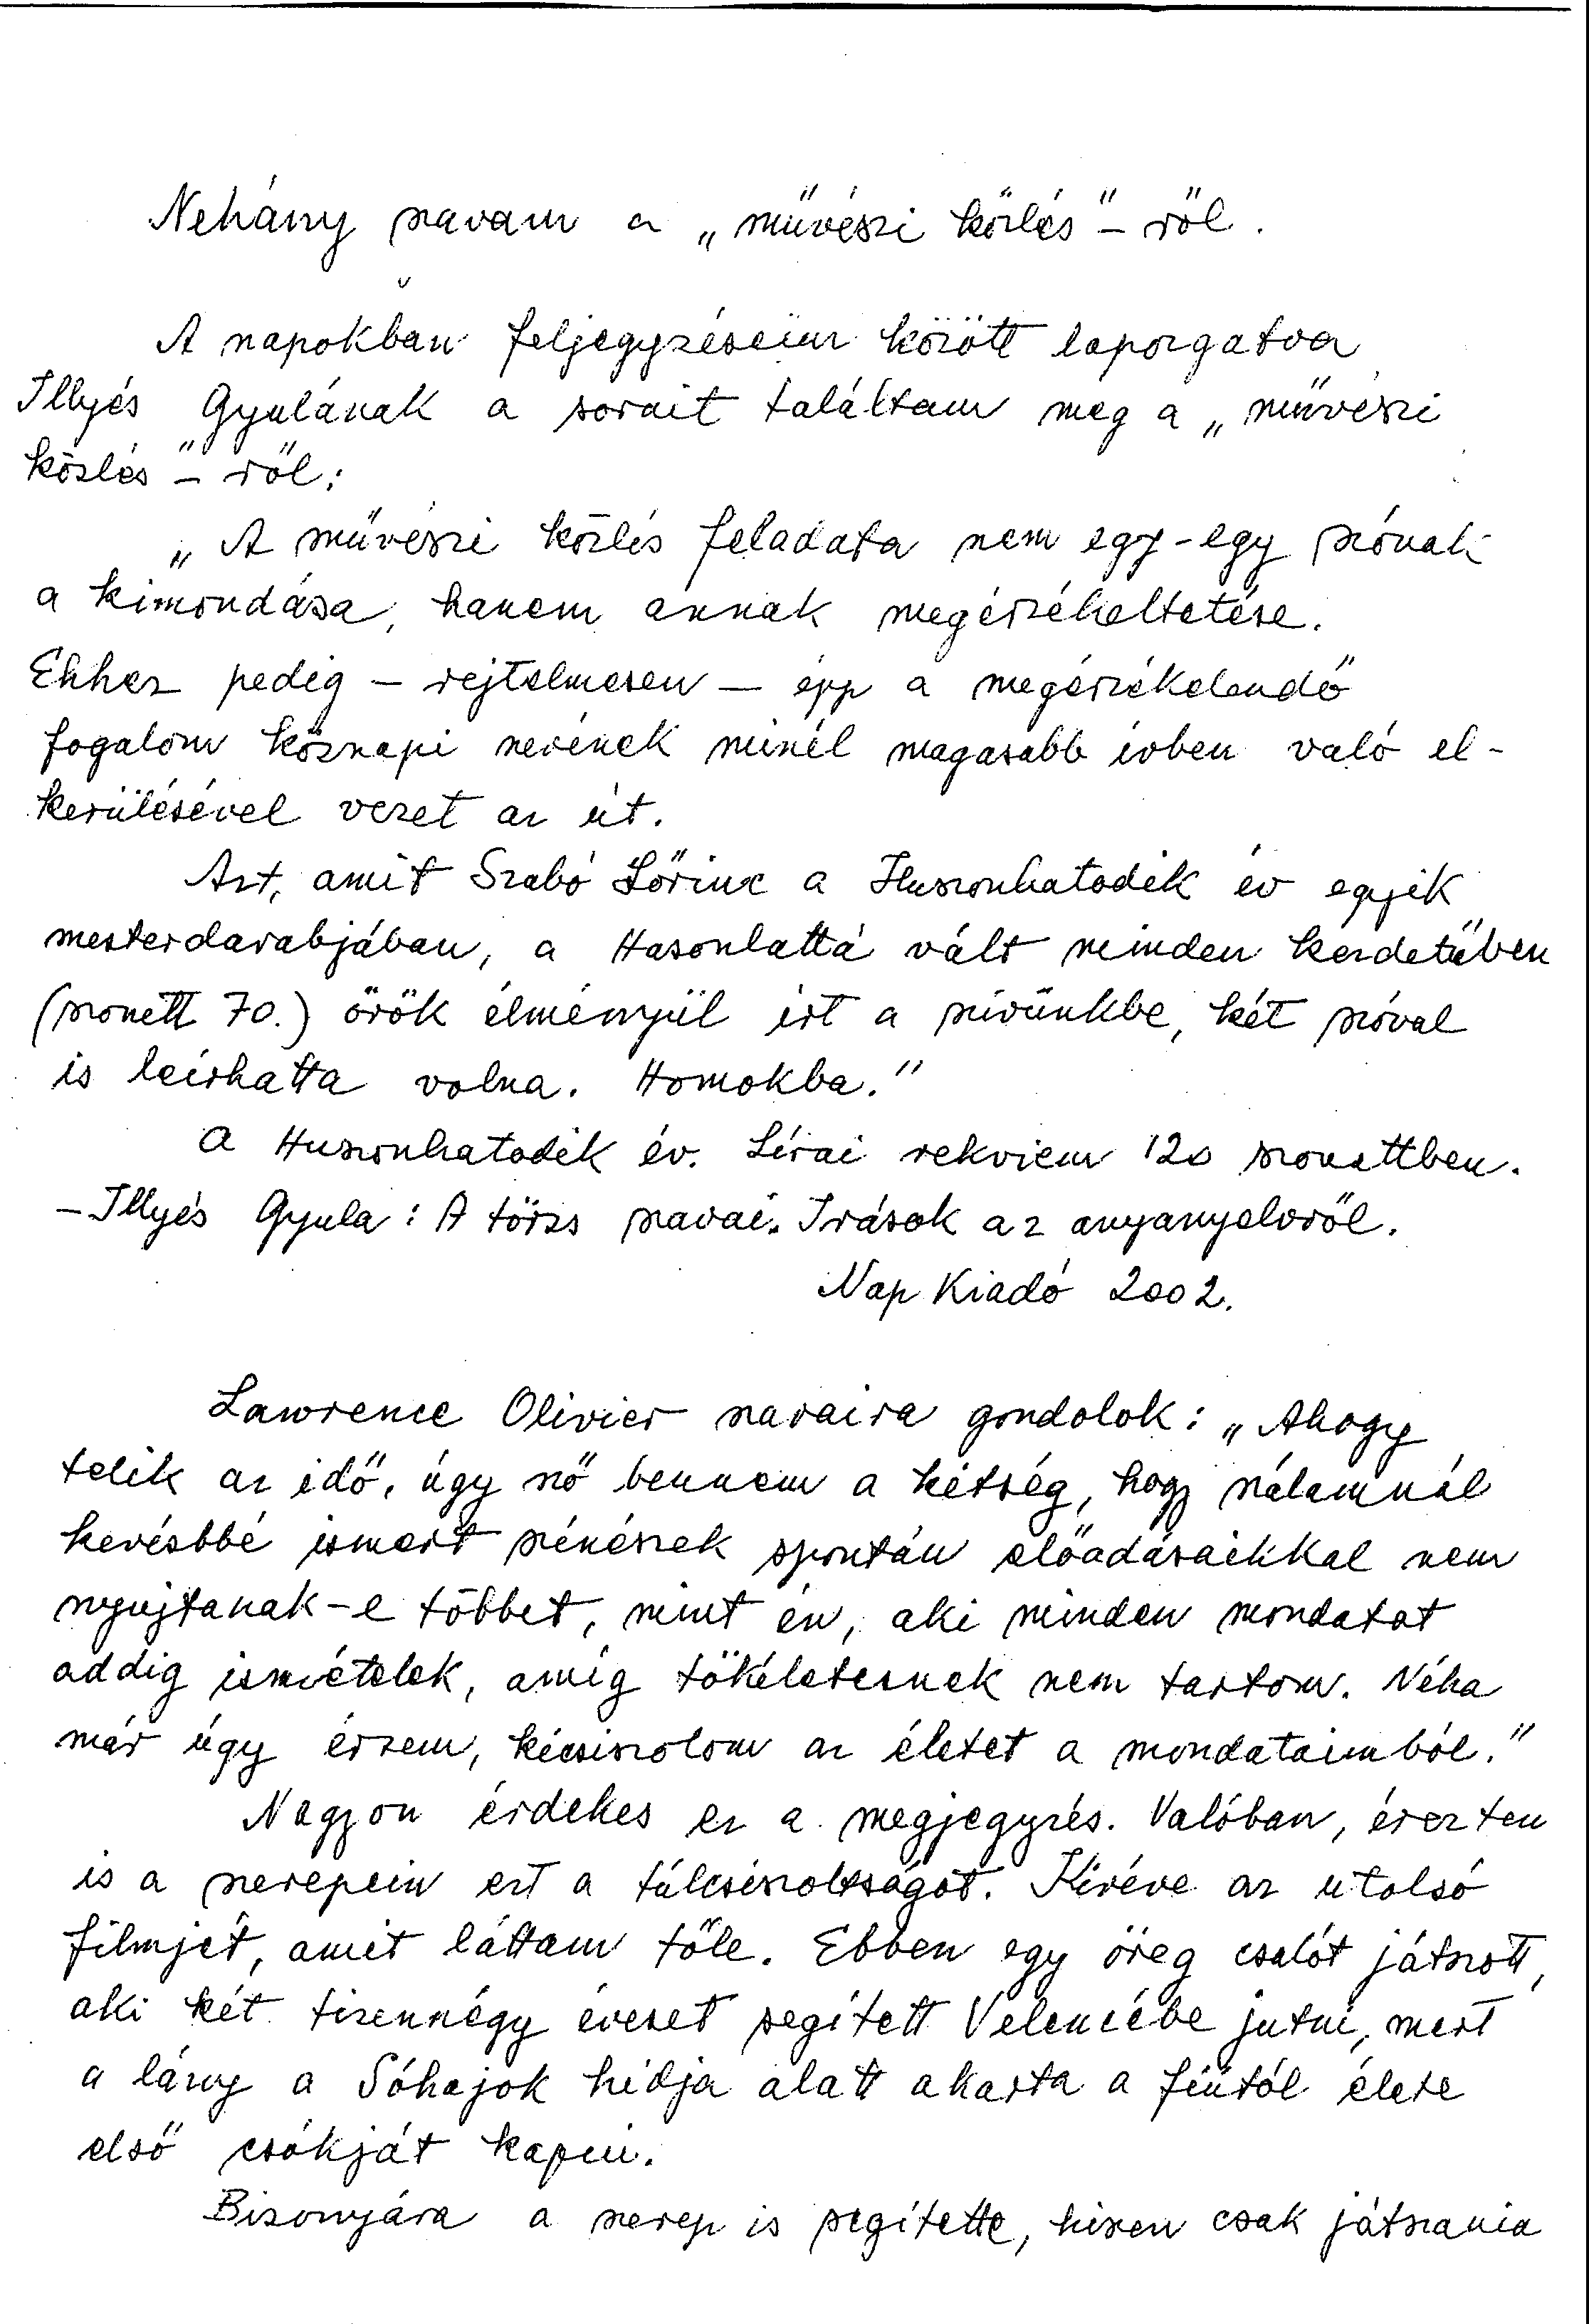 Nehány szavam a „művészi közlés"-ről.
A napokban feljegyzéseim között lapozgatva
Illyés Gyulának a sorait találtam meg a „művészi
közlés"-ről:
„A művészi közlés feladata nem egy-egy szónak
a kimondása, hanem annak megérzékeltetése.
Ehhez pedig – rejtelmesen – épp a megérzékelendő
fogalom köznapi nevének minél magasabb ívben való el-
kerülésével vezet az út.
Azt, amit Szabó Lőrinc a Huszonhatodik év egyik
mesterdarabjában, a Hasonlattá vált minden kezdetűben
(szonett 70.) örök élményül írt a szívünkbe, két szóval
is leírhatta volna. Homokba."
A Huszonhatodik év. Lírai rekviem 120 szonettben.
– Illyés Gyula: A törzs szavai. Irások az anyanyelvről.
Nap Kiadó 2002.
Lawrence Olivier szavaira gondolok: „Ahogy
telik az idő, úgy nő bennem a kétség, hogy nálamnál
kevésbbé ismert színészek spontán előadásaikkal nem
nyujtanak-e többet, mint én, aki minden mondatot
addig ismételek, amíg tökéletesnek nem tartom. Néha
már úgy érzem, kicsiszolom az életet a mondataimból."
Nagyon érdekes ez a megjegyzés. Valóban, éreztem
is a szerepein ezt a túlcsiszoltságot. Kivéve az utolsó
filmjét, amit láttam tőle. Ebben egy öreg csalót játszott,
aki két tizennégy éveset segített Velencébe jutni, mert
a lány a Sóhajok hídja alatt akarta a fiútól élete
első csókját kapni.
Bizonyára a szerep is segítette, hiszen csak játszania